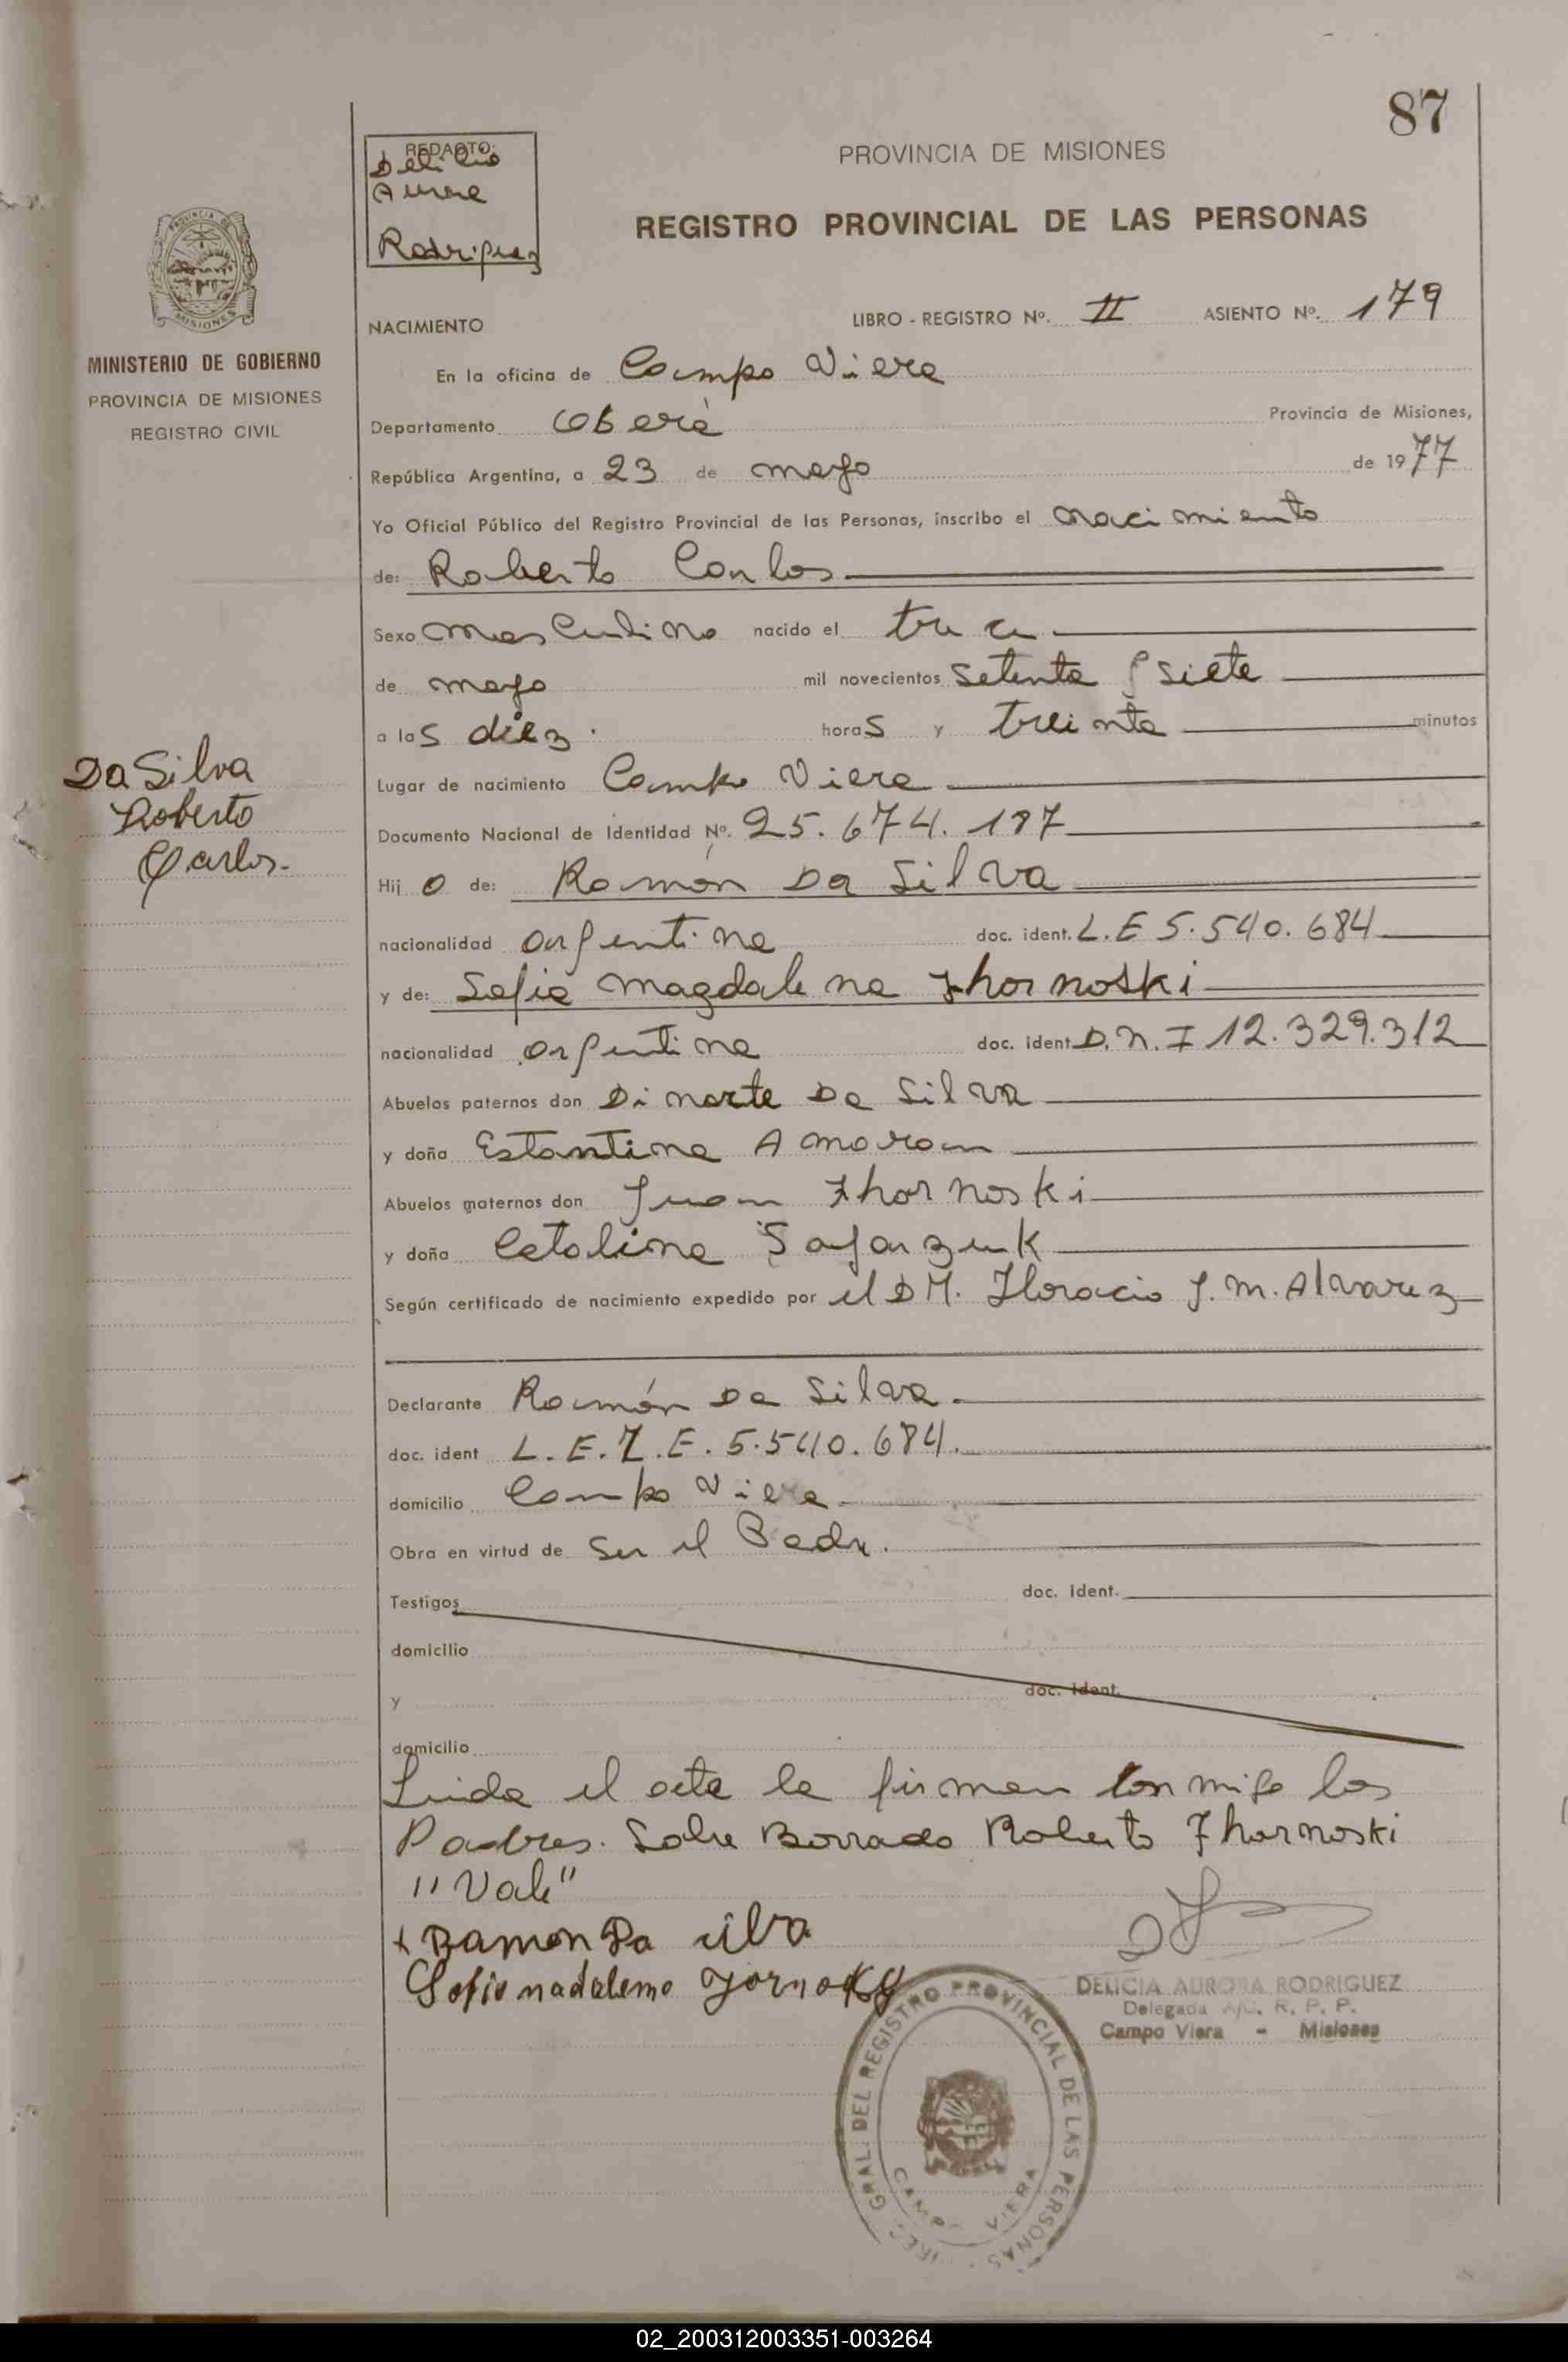 87
REDACTO:
Aurora
Rodriguez
PROVINCIA DE MISIONES
REGISTRO PROVINCIAL DE LAS PERSONAS
PROVINCIA DE
MISIONES
MINISTERIO DE GOBIERNO
PROVINCIA DE MISIONES
REGISTRO CIVIL
NACIMIENTO
LIBRO - REGISTRO Nº. II ASIENTO Nº. 179
En la oficina de Campo Viera
Departamento Oberá Provincia de Misiones,
República Argentina, a 23 de mayo de 1977
Yo Oficial Público del Registro Provincial de las Personas, inscribo el nacimiento
de: Roberto Carlos
Sexo masculino nacido el trece
de mayo mil novecientos setenta y siete
a las diez horas y treinta minutos
Da Silva
Roberto
Carlos.
Lugar de nacimiento Campo Viera
Documento Nacional de Identidad Nº. 25.674.187
Hijo de: Ramón Da Silva
nacionalidad argentina doc. ident. L.E 5.540.684
y de: Sofia Magdalena Zhornoski
nacionalidad argentina doc. ident D.N.I 12.329.312
Abuelos paternos don Dinarte Da Silva
y doña Estantina Amaran
Abuelos maternos don Juan Zhornoski
y doña Catalina
Según certificado de nacimiento expedido por el DM. Horacio J. M. Alvarez
Declarante Ramón Da Silva.
doc. ident L.E. 5.540.684.
domicilio Campo Viera
Obra en virtud de ser el Padre.
Testigos doc. ident.
domicilio
y doc. ident.
domicilio
Leida el acta la firman conmigo los
Padres. Sobre Borrado Roberto Zhornoski
"Vale"
x Ramon Da silva
Sofia madalema Jornosky
DELICIA AURORA RODRIGUEZ
Delegada A/C. R. P. P.
Campo Viera - Misiones
GRAL. DEL REGISTRO PROVINCIAL DE LAS PERSONAS
VIERA
02_200312003351-003264